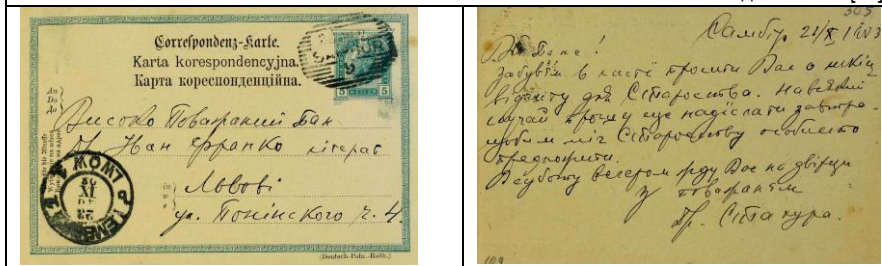 Correspondenz-Karte.
Karta korespondencyjna.
Карта кореспонденційна.
An
Do
До
5 HELLER 5
Високо Поважаний Пан
Др Іван Франко літерат
Львові
ул. Понінского ч. 4.
LWÓW 1
LEMBERG
(Deutsch-Poln.-Ruth.)
505
Самбір, 21/X 1903
Вп. Пане!
Забувєм в листі просити Вас о
відбитку для Староства. На всякий
случай прошу ще надіслати завтра
щобим міг Староству особисто
предложити.
В суботу вечером жду Вас на двірци
З поважанєм
Др. Стахура.
109